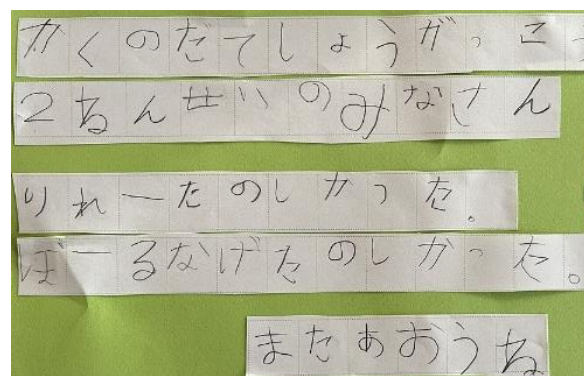 かくのだてしょうがっこう
2ねんせいのみなさん
りれーたのしかった。
ぼーるなげたのしかった。
またあおうね